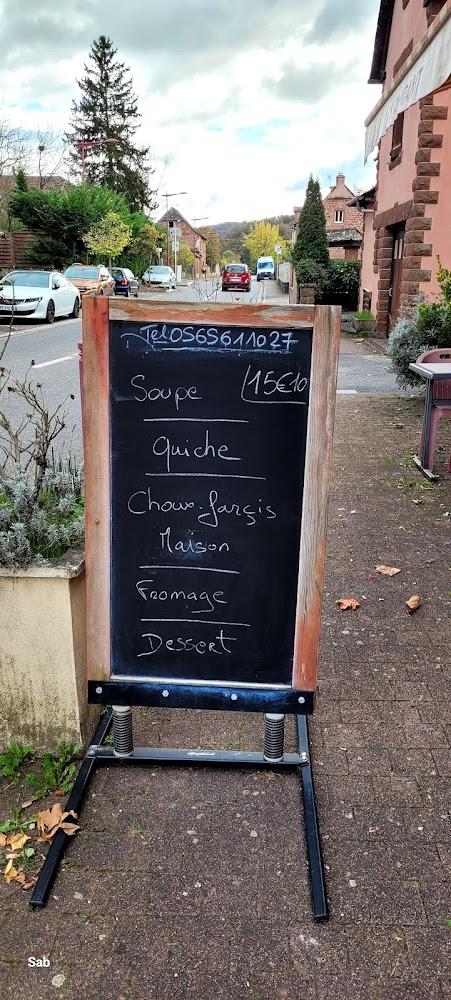 Tel 0565611027
Soupe 15€10
Quiche
Choux-farçis
Maison
Fromage
Dessert
Sab